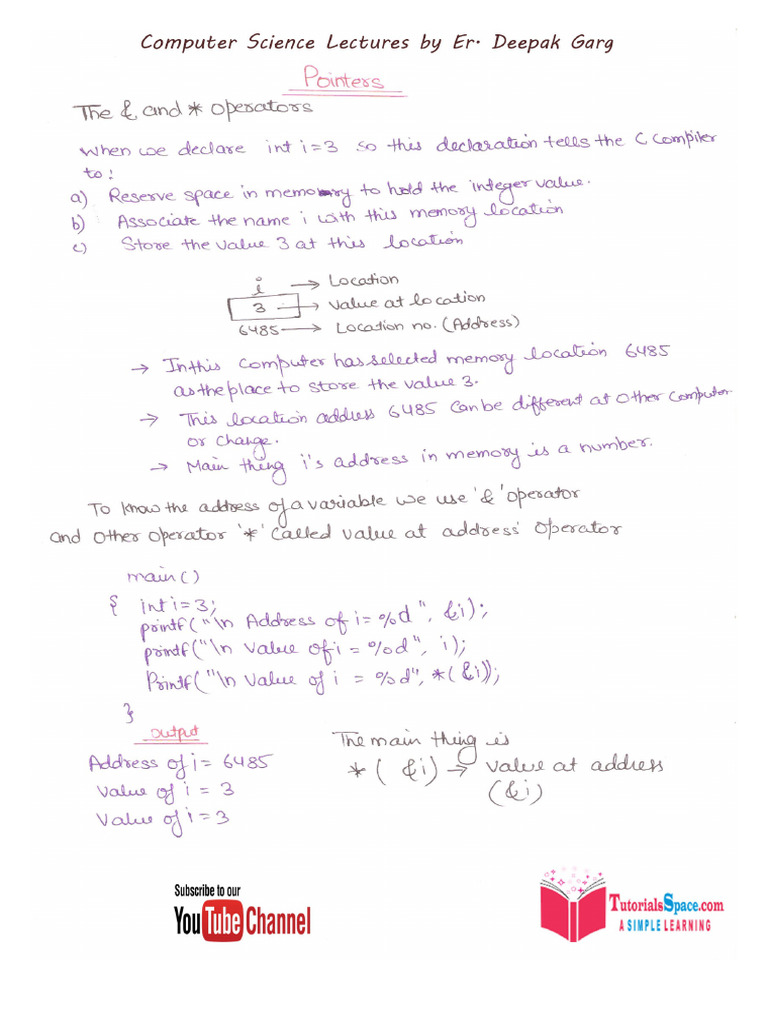 Computer Science Lectures by Er. Deepak Garg
Pointers
The & and * operators
When we declare int i=3 so this declaration tells the C Compiler
to:
a) Reserve space in memory to hold the integer value.
b) Associate the name i with this memory location
c) Store the value 3 at this location
i → Location
3 → Value at location
6485 → Location no. (Address)
→ In this Computer has selected memory location 6485
as the place to store the value 3.
→ This location address 6485 can be different at other computer
or change.
→ Main thing i's address in memory is a number.
To know the address of a variable we use '&' operator
and other operator '*' called value at address' operator
main()
{ int i=3;
printf("\n Address of i= %d", &i);
printf("\n Value of i = %d", i);
Printf("\n Value of i = %d", *(&i));
}
output
Address of i= 6485
Value of i = 3
Value of i = 3
The main thing is
*( &i) → value at address
(&i)
Subscribe to our
YouTube Channel
TutorialsSpace.com
A SIMPLE LEARNING